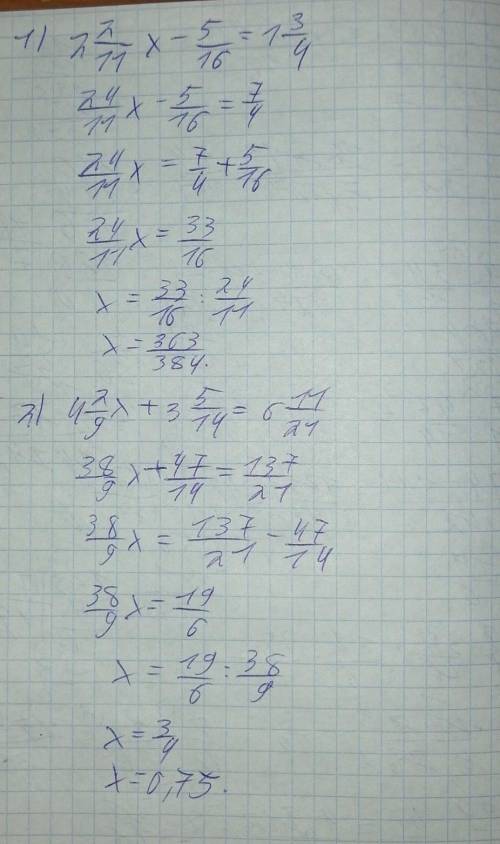 1) 2 2/11 x - 5/16 = 1 3/4
24/11 x - 5/16 = 7/4
24/11 x = 7/4 + 5/16
24/11 x = 33/16
x = 33/16 : 24/11
x = 363/384.
2) 4 2/9 x + 3 5/14 = 6 11/21
38/9 x + 47/14 = 137/21
38/9 x = 137/21 - 47/14
38/9 x = 19/6
x = 19/6 : 38/9
x = 3/4
x = 0,75.